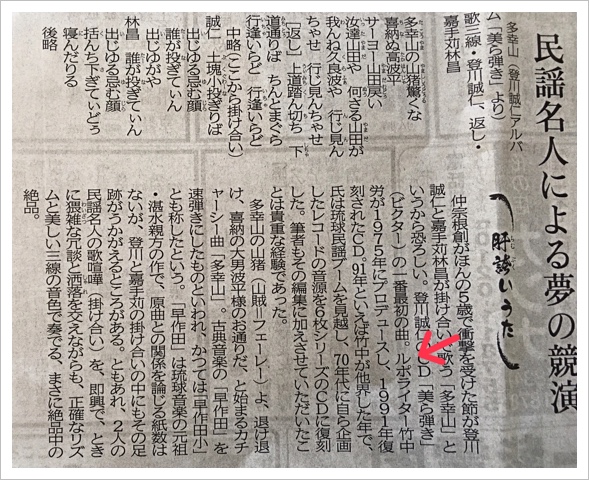 民謡名人による夢の競演
肝誇いうたし
多幸山（登川誠仁アルバ
ム「美ら弾き」より）
歌三線・登川誠仁、返し・
嘉手苅林昌
多幸山の山猪驚くな
喜納ぬ高波平
サーヨー山田戻い
汝達山田や 何ざる山田が
我んね久良波や 行じ見ん
ちゃせ 行じ見んちゃせ
「返し」上道踏ん切ち 下
道通りば ちんとまぐら
行逢いらど 行逢いらど
中略（ここから掛け合い）
誠仁 土塊が投ぎりば
出じゆる忌む顔
誰が投ぎてぃん
出じがや
林昌 誰が投ぎてぃん
出じゆる忌む顔
括んち下ぎてぃどぅ
寝んだりる
後略
仲宗根創がほんの5歳で衝撃を受けた節が登川
誠仁と嘉手苅林昌が掛け合いで歌う「多幸山」と
いうから恐ろしい。登川誠仁のCD「美ら弾き」
（ビクター）の一番最初の曲。ルポライター竹中
労が1975年にプロデュースし、1991年復
刻されたCD。91年といえば竹中が他界した年で、
氏は琉球民謡ブームを見越し、70年代に自ら企画
したレコードの音源を6枚シリーズのCDに復刻
した。筆者もその編集に加えさせていただいたこ
とは貴重な経験であった。
多幸山の山猪（山賊＝フェーレー）よ、退け退
け、喜納の大身波平様のお通りだ、と始まるカチ
ャーシー曲「多幸山」。古典音楽の「早作田」を
速弾きにしたものといわれ、かつては「早作田小」
とも称したという。「早作田」は琉球音楽の元祖
・湛水親方の作で、原曲との関係を論じる紙数は
ないが、登川と嘉手苅の掛け合いの中にもその足
跡がうかがえるところがある。ともあれ、2人の
民謡名人の歌喧嘩（掛け合い）を、即興で、とき
に猥雑な冗談と洒落を交えながらも、正確なリズ
ムと美しい三線の音色で奏でる、まさに絶品中の
絶品。